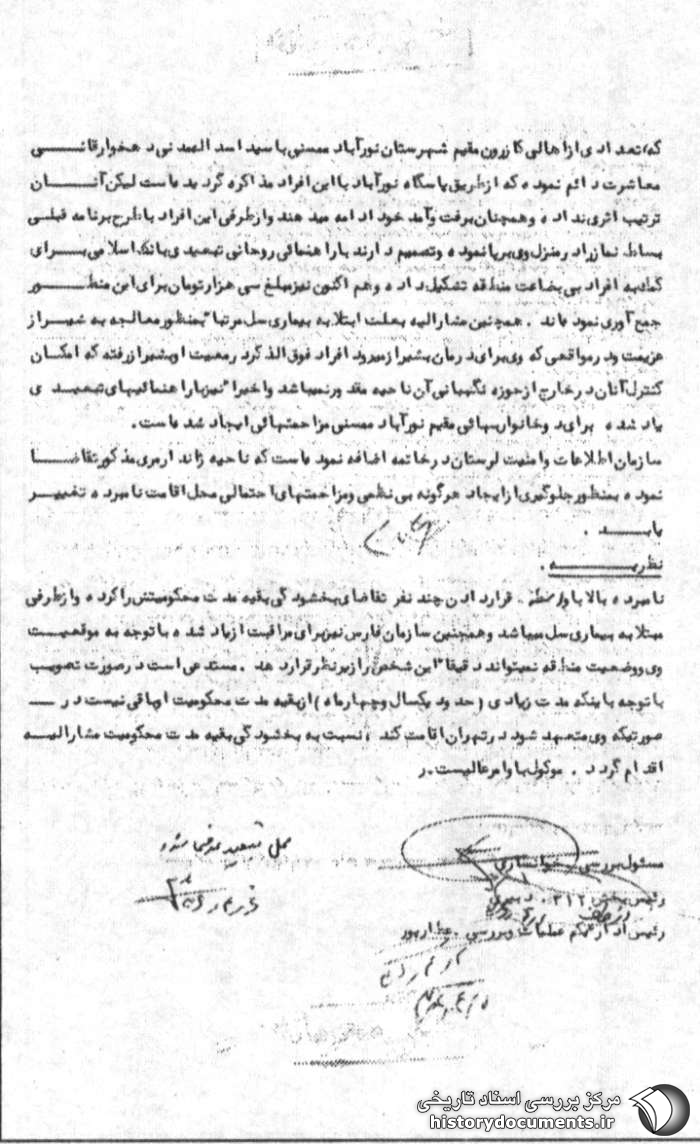 که، تعدادی از اهالی کازرون مقیم شهرستان نورآباد ممسنی با سید اسداله مدنی دهخوارقانی
معاشرت دائم نموده که از طریق پاسگاه نورآباد با این افراد مذاکره گردیده است لیکن آنان
ترتیب اثری نداده و همچنان برفت و آمد خود ادامه میدهند و از طرفی این افراد با طرح برنامه قبلی
بساط نماز را در منزل وی برپا نموده و تصمیم دارند با راهنمائی روحانی تبعیدی بانک اسلامی برای
کمک به افراد بی بضاعت منطقه تشکیل داده و هم اکنون نیز مبلغ سی هزار تومان برای این منظور
جمع آوری نموده اند . همچنین مشارالیه بعلت ابتلا به بیماری سل مرتبا" بمنظور معالجه به شیراز
عزیمت و در مواقعی که وی برای درمان بشیراز میرود افراد فوق الذکر در معیت او بشیراز رفته که امکان
کنترل آنان در خارج از حوزه نگهبانی آن ناحیه مقدور نمیباشد و اخیرا" نیز با راهنمائیهای تبعیدی
یاد شده برای دو خانوار بهائی مقیم نورآباد ممسنی مزاحمتهائی ایجاد شده است.
سازمان اطلاعات و امنیت لرستان در خاتمه اضافه نموده است که ناحیه ژاندارمری مذکور تقاضا
نموده بمنظور جلوگیری از ایجاد هرگونه بی نظمی و مزاحمتهای احتمالی محل اقامت نامبرده تغییر
یابد .
نظریه .
نامبرده بالا با واسطه قرار دادن چند نفر تقاضای بخشودگی بقیه مدت محکومیتش را کرده و از طرفی
مبتلا به بیماری سل میباشد و همچنین سازمان فارس نیز برای مراقبت از یاد شده با توجه به موقعیت
وی و وضعیت منطقه نمیتواند دقیقا" این شخص را زیر نظر قرار دهد . مستدعی است در صورت تصویب
با توجه باینکه مدت زیادی (حدود یکسال و چهار ماه) از بقیه مدت محکومیت او باقی نیست در
صورتیکه وی متعهد شود در تهران اقامت کند ، نسبت به بخشودگی بقیه مدت محکومیت مشارالیه
اقدام گردد . موکول باوامر عالیست. ر
محل تبعید عوض شود
مسئول بررسی . خوانساری
رئیس بخش ۳۱۲ .
رئیس اداره یکم عملیات و بررسی . عطارپور
مرکز بررسی اسناد تاریخی
historydocuments.ir